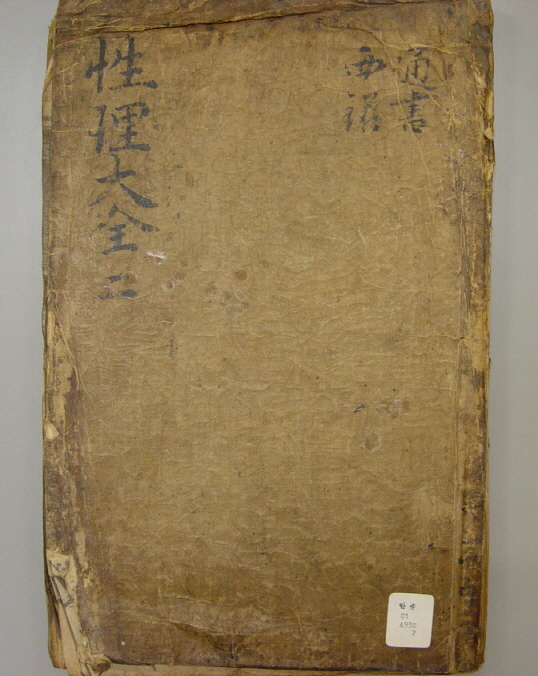 通書
西銘
性理大全 二
C1
A93
2